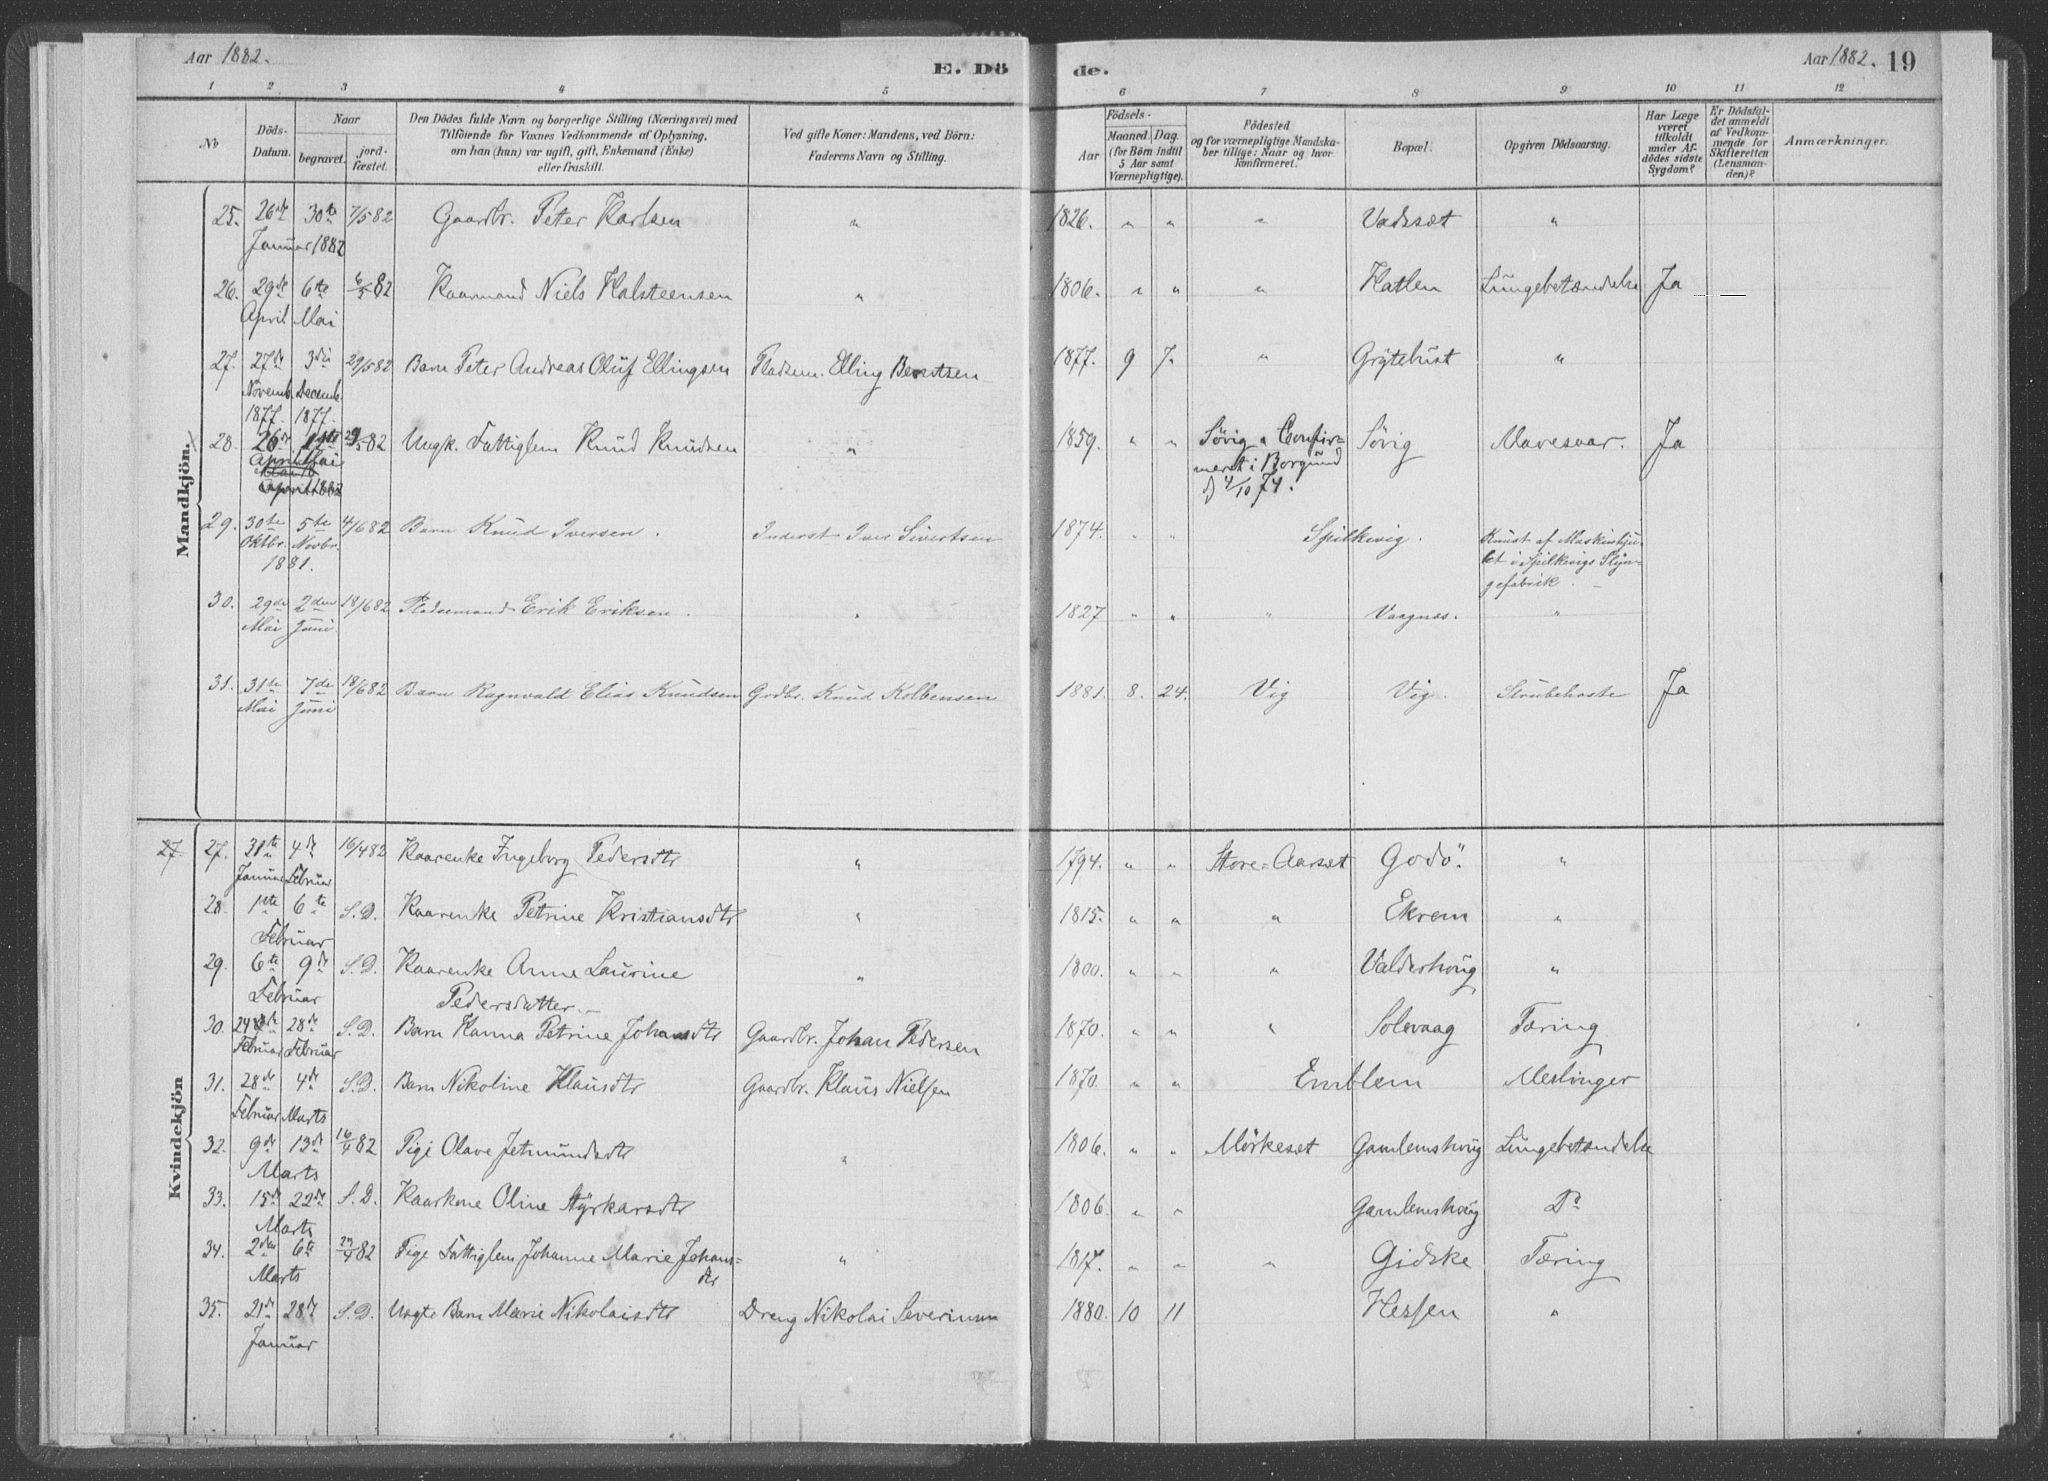 Aar 1882.
E. Dö
de.
Aar 1882. 19
1 2 3 4 5 6 7 8 9 10 11 12
No
Döds-Datum.
Naar
begravet.
jord-fæstet.
Den Dödes fulde Navn og borgerlige Stilling (Næringsvei) med
Tilföiende for Voxnes Vedkommende af Oplysning,
om han (hun) var ugift, gift, Enkemand (Enke)
eller fraskilt.
Ved gifte Koner: Mandens, ved Börn:
Faderens Navn og Stilling.
Födsels-
Aar
Maaned. Dag.
(for Börn indtil
5 Aar samt
Værnepligtige).
Födested
og for værnepligtige Mandska-
ber tillige: Naar og hvor
konfirmeret.
Bopæl.
Opgiven Dödsaarsag.
Har Læge
været
tilkaldt
under Af-
dödes sidste
Sygdom?
Er Dödsfal-
det anmeldt
af Vedkom-
mende for
Skifteretten
(Lensman-
den)?
Anmærkninger.
Mandkjön.
25. 26de 30te 7/5 82 Gaardbr. Peter Karlsen " 1826. " " " Vadsæt "
Januar 1882
26. 29de 6te 6/5 82 Kaarmand Niels Halsteensen " 1806. " " " Hatlen Lungebetændelse Ja
April Mai
27. 27de 3die 29/5 82 Barn Peter Andreas Oluf Ellingsen Pladsm. Elling Berntsen 1877. 9 7. " Grytebust "
Novemb. Decemb.
1877. 1877.
28. 26de 29/5 82 Ungk. Fattiglem Knud Knudsen " 1859. " " Sövig Confir- Sövig Mavesaar. Ja
April Mai meret i Borgund
April 1882 d 4/10 74.
29. 30te 5te 4/6 82 Barn Knud Iversen. Inderst Iver Sivertsen 1874. " " Spilkevig. Knust af Maskinhju-
Oktbr. Novbr. let i Spilkevigs Slyn-
1881. gefabrik.
30. 29de 2den 18/6 82 Pladsemand Erik Eriksen. " 1827 " " " Vaagnæs. "
Mai Juni
31. 31te 7de 18/6 82 Barn Ragnvald Elias Knudsen Gdbr. Knud Kolbensen 1881. 8. 24. Vig Vig. Strubehoste Ja
Mai Juni
Kvindekjön
27. 27. 31te 4de 16/4 82 Kaarenke Ingeborg Pedersdtr " 1794. " " Store-Aarset Godö. "
Januar Februar
28. 1ste 6te S.D. Kaarenke Petrine Kristiansdtr " 1815. " " " Ekrem "
Februar
29. 6te 9de S.D. Kaarenke Anne Laurine " 1800. " " " Valderhoug "
Februar Pedersdatter.
30. 24de 28de S.D. Barn Hanna Petrine Johansdtr Gaardbr. Johan Pedersen 1870. " " " Solevaag Tæring
Februar Februar
31. 28de 4de S.D. Barn Nikoline Klausdtr Gaardbr. Klaus Nielsen 1870. " " Emblem Meslinger
Februar Marts
32. 9de 13de 16/4 82 Pige Olave Jetmundsdtr " 1806. " " Mörkeset Gamlemshoug Lungebetændelse
Marts
33. 15de 22de S.D. Kaarkone Oline Styrkarsdtr 1806. " " Gamlemshoug Do
Marts
34. 2den 6te 23/4 82 Pige Fattiglem Johanne Marie Johans- " 1817. " " " Gidske Tæring
Marts dtr
35. 21de 28de S.D. Uægte Barn Marie Nikolaisdtr Dreng Nikolai Severinsen 1880. 10 11 Hessen "
Januar